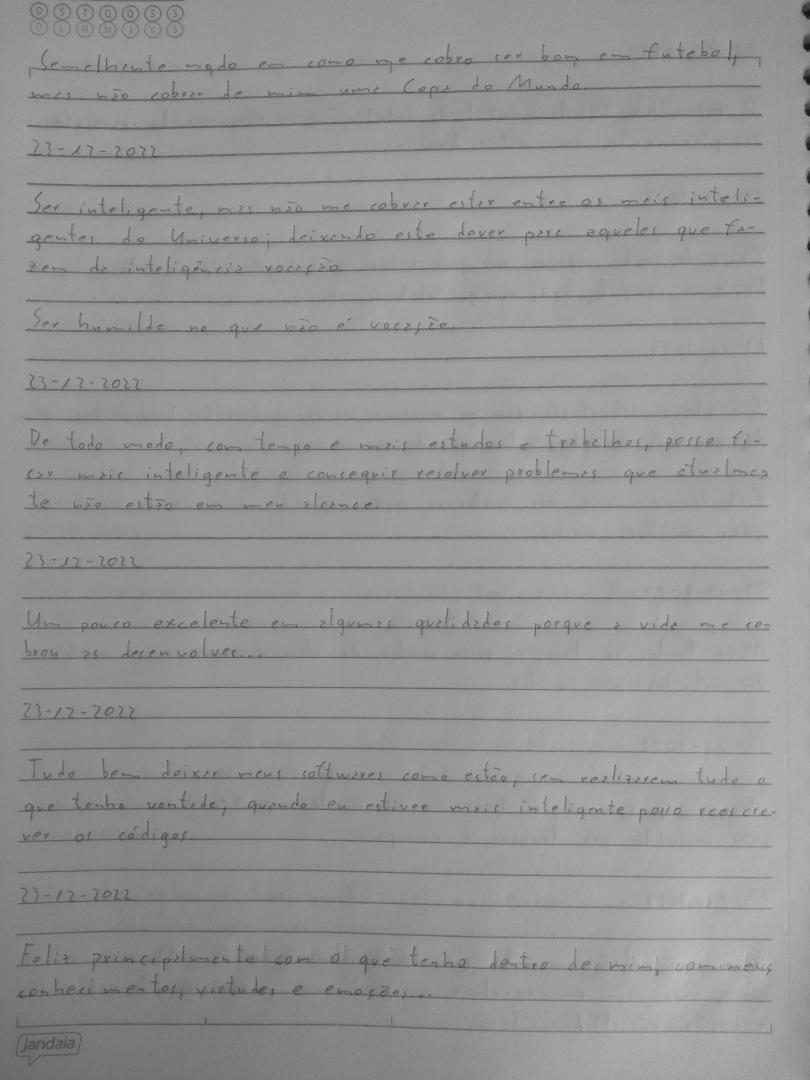 D S T Q Q S S
D L M M J V S
Semelhante nado em como me cobro ser bom em futebol,
mas não cobrar de mim uma Copa do Mundo.
23-12-2022
Ser inteligente, mas não me cobrar estar entre os mais inteli-
gentes do Universo; deixando este dever para aqueles que fa-
zem da inteligência vocação.
Ser humilde no que não é vocação.
23-12-2022
De todo modo, com tempo e mais estudos e trabalhos, posso fi-
car mais inteligente e conseguir resolver problemas que atualmen
te não estão em meu alcance.
23-12-2022
Um pouco excelente em algumas qualidades porque a vida me co-
brou as desenvolver...
23-12-2022
Tudo bem deixar meus softwares como estão, sem realizarem tudo o
que tenho vontade; quando eu estiver mais inteligente posso reescre-
ver os códigos.
23-12-2022
Feliz principalmente com o que tenho dentro de mim, com meus
conhecimentos, virtudes e emoções...
jandaia